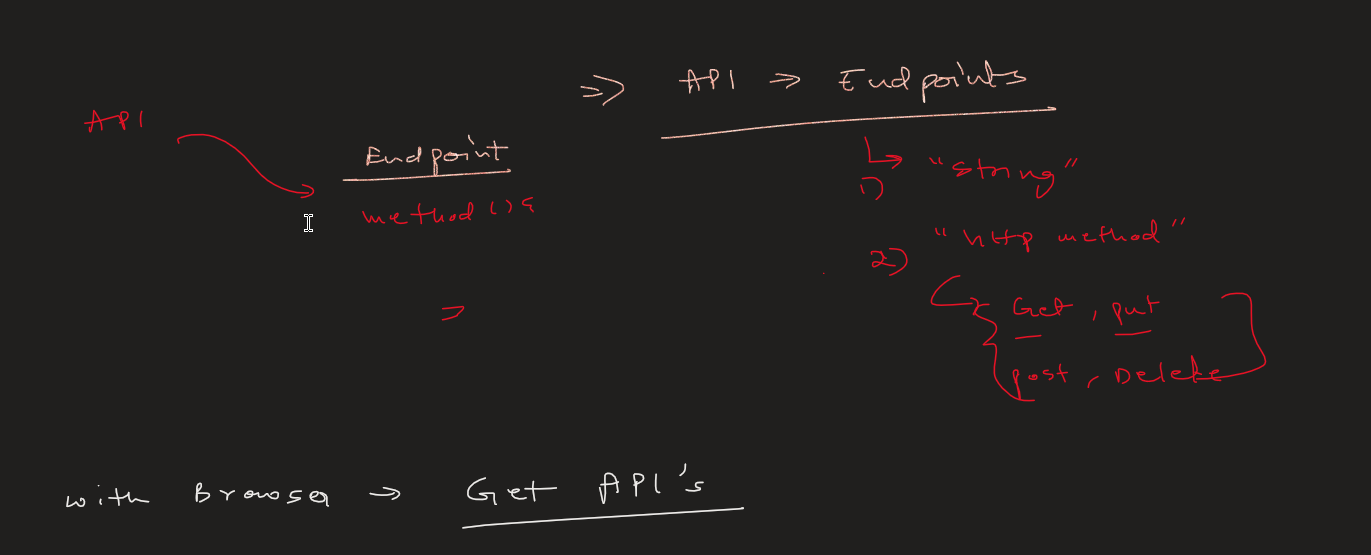 ⇒ API → Endpoints
API
Endpoint
method () {
1) → "string"
2) "http method"
Get, put
post, Delete
with Browser → Get API's